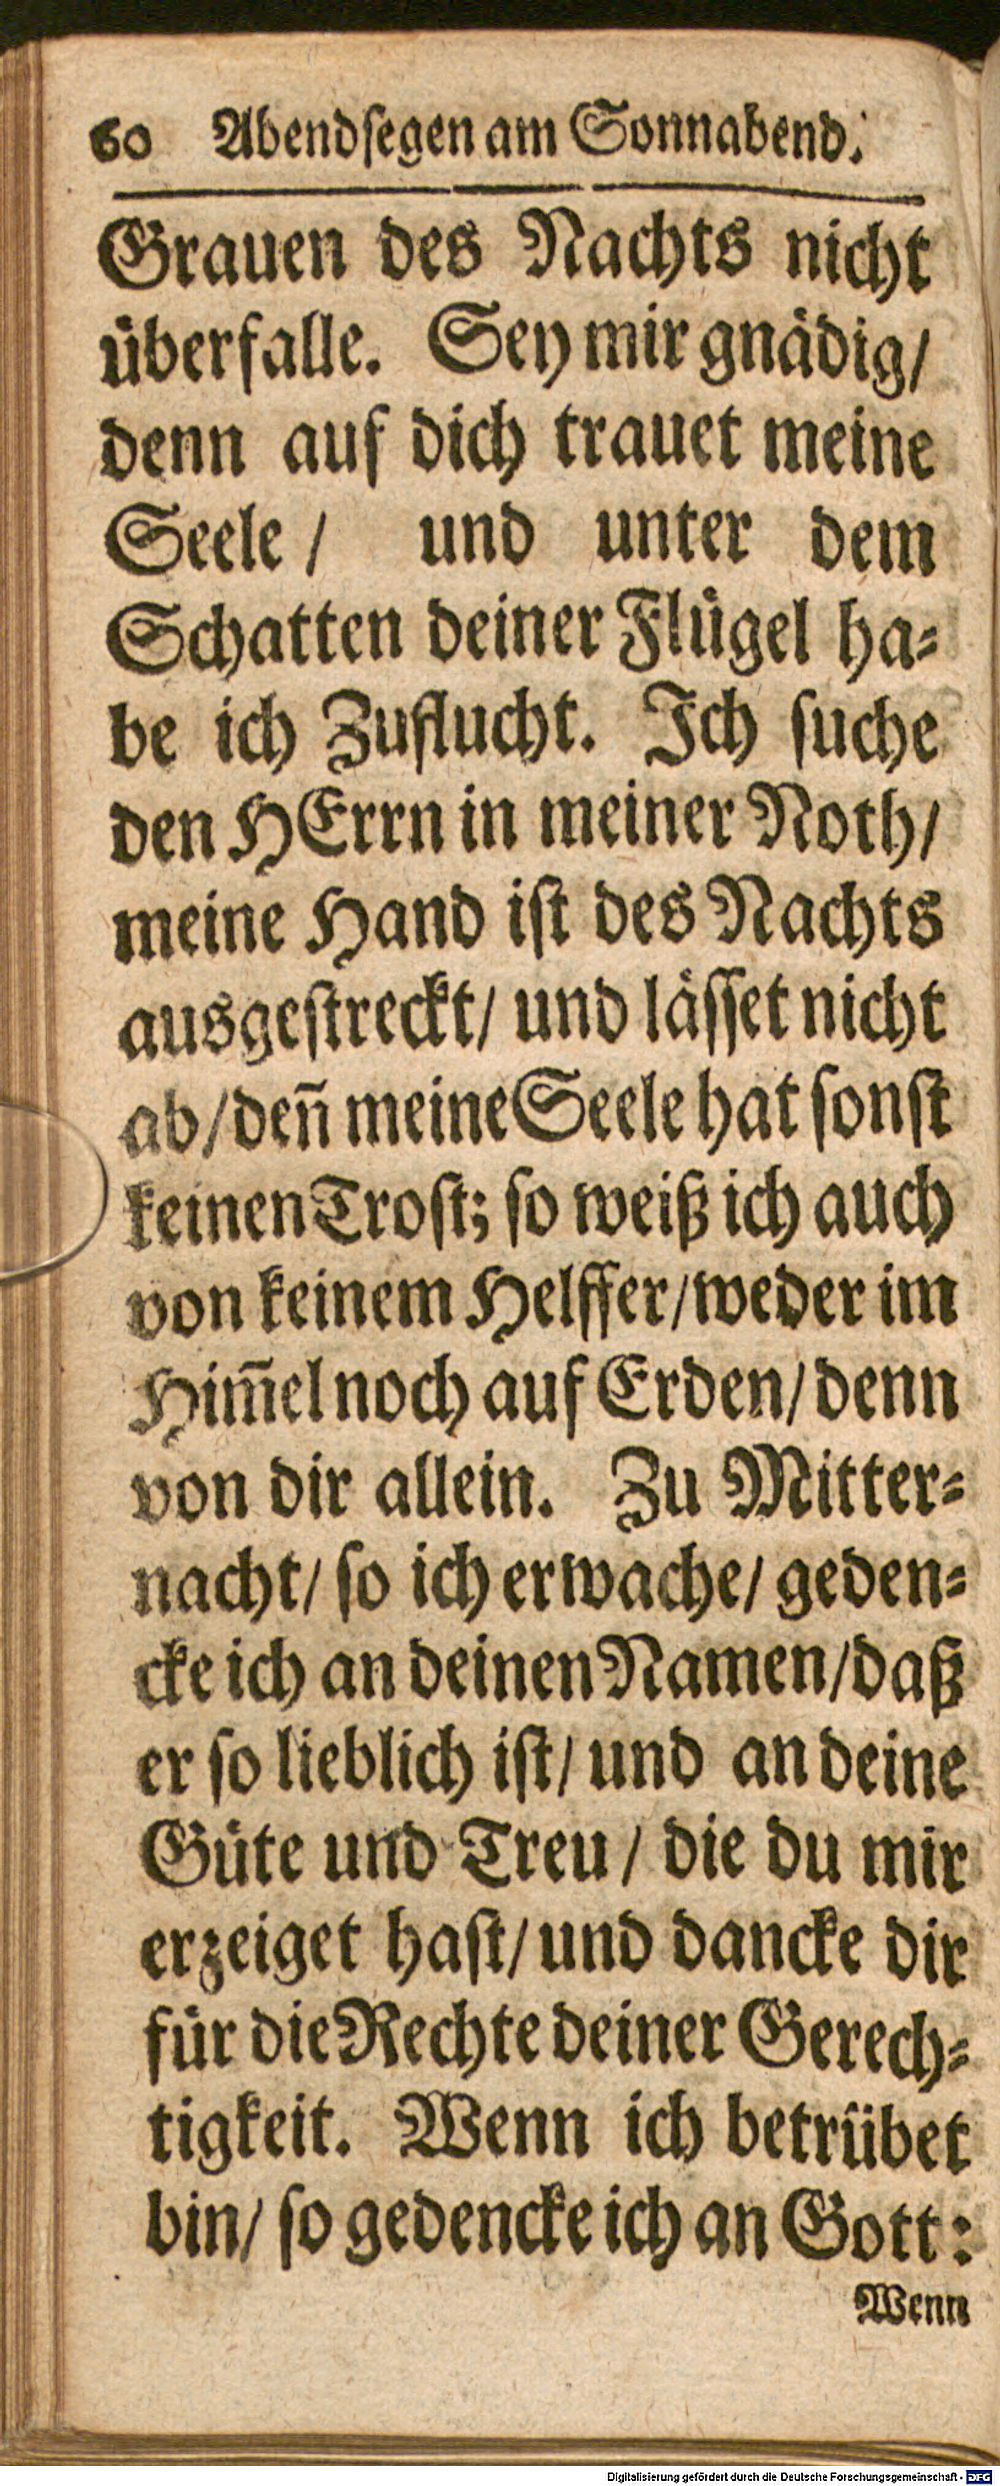 60 Abendsegen am Sonnabend.
Grauen des Nachts nicht
überfalle. Sey mir gnädig/
denn auf dich trauet meine
Seele / und unter dem
Schatten deiner Flügel ha-
be ich Zuflucht. Ich suche
den HErrn in meiner Noth/
meine Hand ist des Nachts
ausgestreckt/ und lässet nicht
ab/ den̄ meine Seele hat sonst
keinen Trost; so weiß ich auch
von keinem Helffer/ weder im
Him̄el noch auf Erden/ denn
von dir allein. Zu Mitter-
nacht/ so ich erwache/ geden-
cke ich an deinen Namen/ daß
er so lieblich ist/ und an deine
Güte und Treu / die du mir
erzeiget hast/ und dancke dir
für die Rechte deiner Gerech-
tigkeit. Wenn ich betrübet
bin/ so gedencke ich an Gott:
Wenn
Digitalisierung gefördert durch die Deutsche Forschungsgemeinschaft - DFG